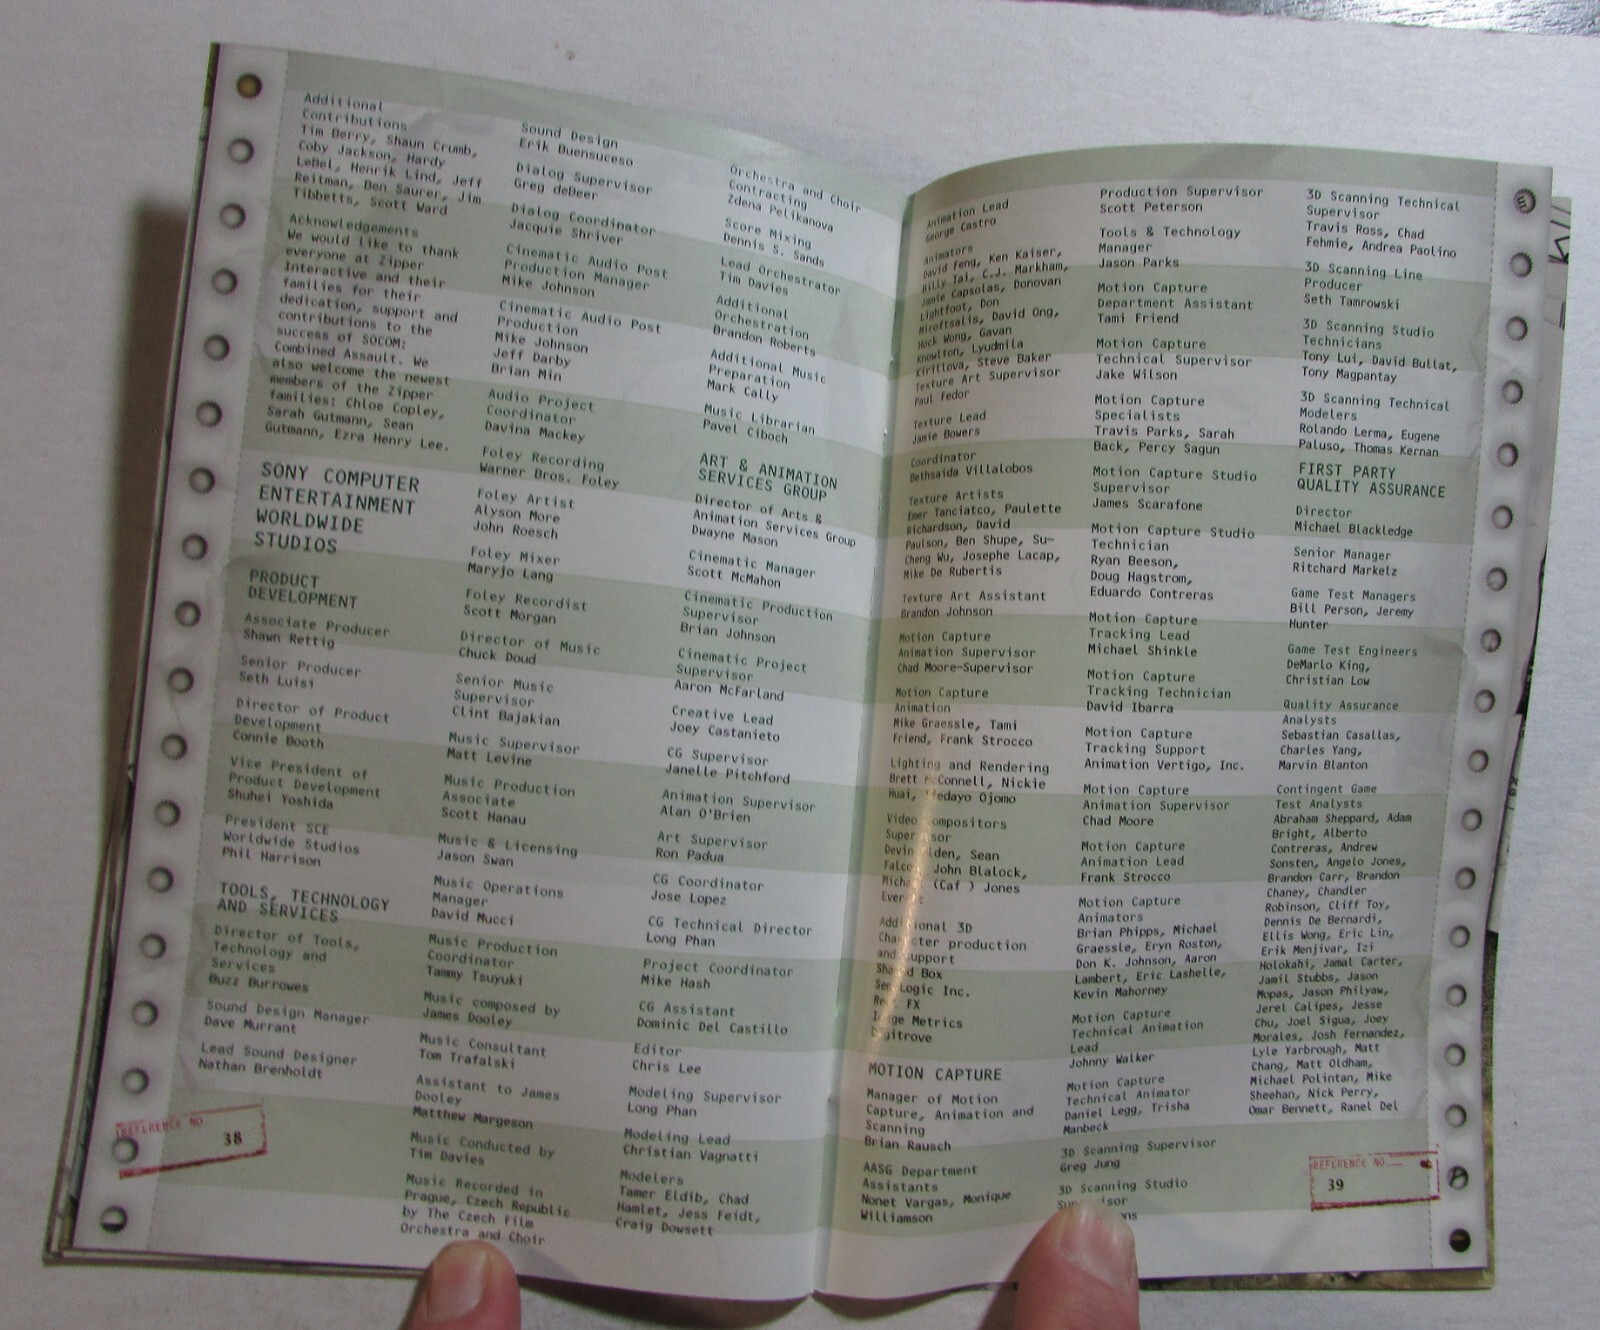 Additional
Contributions
Tim Berry, Shaun Crumb,
Coby Jackson, Hardy
LeBel, Henrik Lind, Jeff
Reitman, Ben Saurer, Jim
Tibbetts, Scott Ward
Acknowledgements
We would like to thank
everyone at Zipper
Interactive and their
families for their
dedication, support and
contributions to the
success of SOCOM:
Combined Assault. We
also welcome the newest
members of the Zipper
families: Chloe Copley,
Sarah Gutmann, Sean
Gutmann, Ezra Henry Lee.
SONY COMPUTER
ENTERTAINMENT
WORLDWIDE
STUDIOS
PRODUCT
DEVELOPMENT
Associate Producer
Shawn Rettig
Senior Producer
Seth Luisi
Director of Product
Development
Connie Booth
Vice President of
Product Development
Shuhei Yoshida
President SCE
Worldwide Studios
Phil Harrison
TOOLS, TECHNOLOGY
AND SERVICES
Director of Tools,
Technology and
Services
Buzz Burrowes
Sound Design Manager
Dave Murrant
Lead Sound Designer
Nathan Brenholdt
REFERENCE NO
38
Sound Design
Erik Buensuceso
Dialog Supervisor
Greg deBeer
Dialog Coordinator
Jacquie Shriver
Cinematic Audio Post
Production Manager
Mike Johnson
Cinematic Audio Post
Production
Mike Johnson
Jeff Darby
Brian Min
Audio Project
Coordinator
Davina Mackey
Foley Recording
Warner Bros. Foley
Foley Artist
Alyson More
John Roesch
Foley Mixer
Maryjo Lang
Foley Recordist
Scott Morgan
Director of Music
Chuck Doud
Senior Music
Supervisor
Clint Bajakian
Music Supervisor
Matt Levine
Music Production
Associate
Scott Hanau
Music & Licensing
Jason Swan
Music Operations
Manager
David Mucci
Music Production
Coordinator
Tammy Tsuyuki
Music composed by
James Dooley
Music Consultant
Tom Trafalski
Assistant to James
Dooley
Matthew Margeson
Music Conducted by
Tim Davies
Music Recorded in
Prague, Czech Republic
by The Czech Film
Orchestra and Choir
Orchestra and Choir
Contracting
Zdena Pelikanova
Score Mixing
Dennis S. Sands
Lead Orchestrator
Tim Davies
Additional
Orchestration
Brandon Roberts
Additional Music
Preparation
Mark Cally
Music Librarian
Pavel Ciboch
ART & ANIMATION
SERVICES GROUP
Director of Arts &
Animation Services Group
Dwayne Mason
Cinematic Manager
Scott McMahon
Cinematic Production
Supervisor
Brian Johnson
Cinematic Project
Supervisor
Aaron McFarland
Creative Lead
Joey Castanieto
CG Supervisor
Janelle Pitchford
Animation Supervisor
Alan O'Brien
Art Supervisor
Ron Padua
CG Coordinator
Jose Lopez
CG Technical Director
Long Phan
Project Coordinator
Mike Hash
CG Assistant
Dominic Del Castillo
Editor
Chris Lee
Modeling Supervisor
Long Phan
Modeling Lead
Christian Vagnatti
Modelers
Tamer Eldib, Chad
Hamlet, Jess Feidt,
Craig Dowsett
Animation Lead
George Castro
Animators
David Feng, Ken Kaiser,
Billy Tai, C.J. Markham,
Jamie Capsolas, Donovan
Lightfoot, Don
Miroftsalis, David Ong,
Hock Wong, Gavan
Knowlton, Lyudmila
Kirillova, Steve Baker
Texture Art Supervisor
Paul Fedor
Texture Lead
Jamie Bowers
Coordinator
Bethsaida Villalobos
Texture Artists
Emer Tanciatco, Paulette
Richardson, David
Paulson, Ben Shupe, Su-
Cheng Wu, Josephe Lacap,
Mike De Rubertis
Texture Art Assistant
Brandon Johnson
Motion Capture
Animation Supervisor
Chad Moore-Supervisor
Motion Capture
Animation
Mike Graessle, Tami
Friend, Frank Strocco
Lighting and Rendering
Brett McConnell, Nickie
Huai, Ojomo
Video Compositors
Supervisor
Devin Sean
John Blalock,
(Caf ) Jones
Additional 3D
Character production
and Support
Shared Box
SenLogic Inc.
FX
Image Metrics
Digitrove
MOTION CAPTURE
Manager of Motion
Capture, Animation and
Scanning
Brian Rausch
AASG Department
Assistants
Nonet Vargas, Monique
Williamson
Production Supervisor
Scott Peterson
Tools & Technology
Manager
Jason Parks
Motion Capture
Department Assistant
Tami Friend
Motion Capture
Technical Supervisor
Jake Wilson
Motion Capture
Specialists
Travis Parks, Sarah
Back, Percy Sagun
Motion Capture Studio
Supervisor
James Scarafone
Motion Capture Studio
Technician
Ryan Beeson,
Doug Hagstrom,
Eduardo Contreras
Motion Capture
Tracking Lead
Michael Shinkle
Motion Capture
Tracking Technician
David Ibarra
Motion Capture
Tracking Support
Animation Vertigo, Inc.
Motion Capture
Animation Supervisor
Chad Moore
Motion Capture
Animation Lead
Frank Strocco
Motion Capture
Animators
Brian Phipps, Michael
Graessle, Eryn Roston,
Don K. Johnson, Aaron
Lambert, Eric Lashelle,
Kevin Mahorney
Motion Capture
Technical Animation
Lead
Johnny Walker
Motion Capture
Technical Animator
Daniel Legg, Trisha
Manbeck
3D Scanning Supervisor
Greg Jung
3D Scanning Studio
3D Scanning Technical
Supervisor
Travis Ross, Chad
Fehmie, Andrea Paolino
3D Scanning Line
Producer
Seth Tamrowski
3D Scanning Studio
Technicians
Tony Lui, David Bullat,
Tony Magpantay
3D Scanning Technical
Modelers
Rolando Lerma, Eugene
Paluso, Thomas Kernan
FIRST PARTY
QUALITY ASSURANCE
Director
Michael Blackledge
Senior Manager
Ritchard Markelz
Game Test Managers
Bill Person, Jeremy
Hunter
Game Test Engineers
DeMarlo King,
Christian Low
Quality Assurance
Analysts
Sebastian Casallas,
Charles Yang,
Marvin Blanton
Contingent Game
Test Analysts
Abraham Sheppard, Adam
Bright, Alberto
Contreras, Andrew
Sonsten, Angelo Jones,
Brandon Carr, Brandon
Chaney, Chandler
Robinson, Cliff Toy,
Dennis De Bernardi,
Ellis Wong, Eric Lin,
Erik Menjivar, Izi
Holokahi, Jamal Carter,
Jamil Stubbs, Jason
Mopas, Jason Philyaw,
Jerel Calipes, Jesse
Chu, Joel Sigua, Joey
Morales, Josh Fernandez,
Lyle Yarbrough, Matt
Chang, Matt Oldham,
Michael Polintan, Mike
Sheehan, Nick Perry,
Omar Bennett, Ranel Del
REFERENCE NO
39